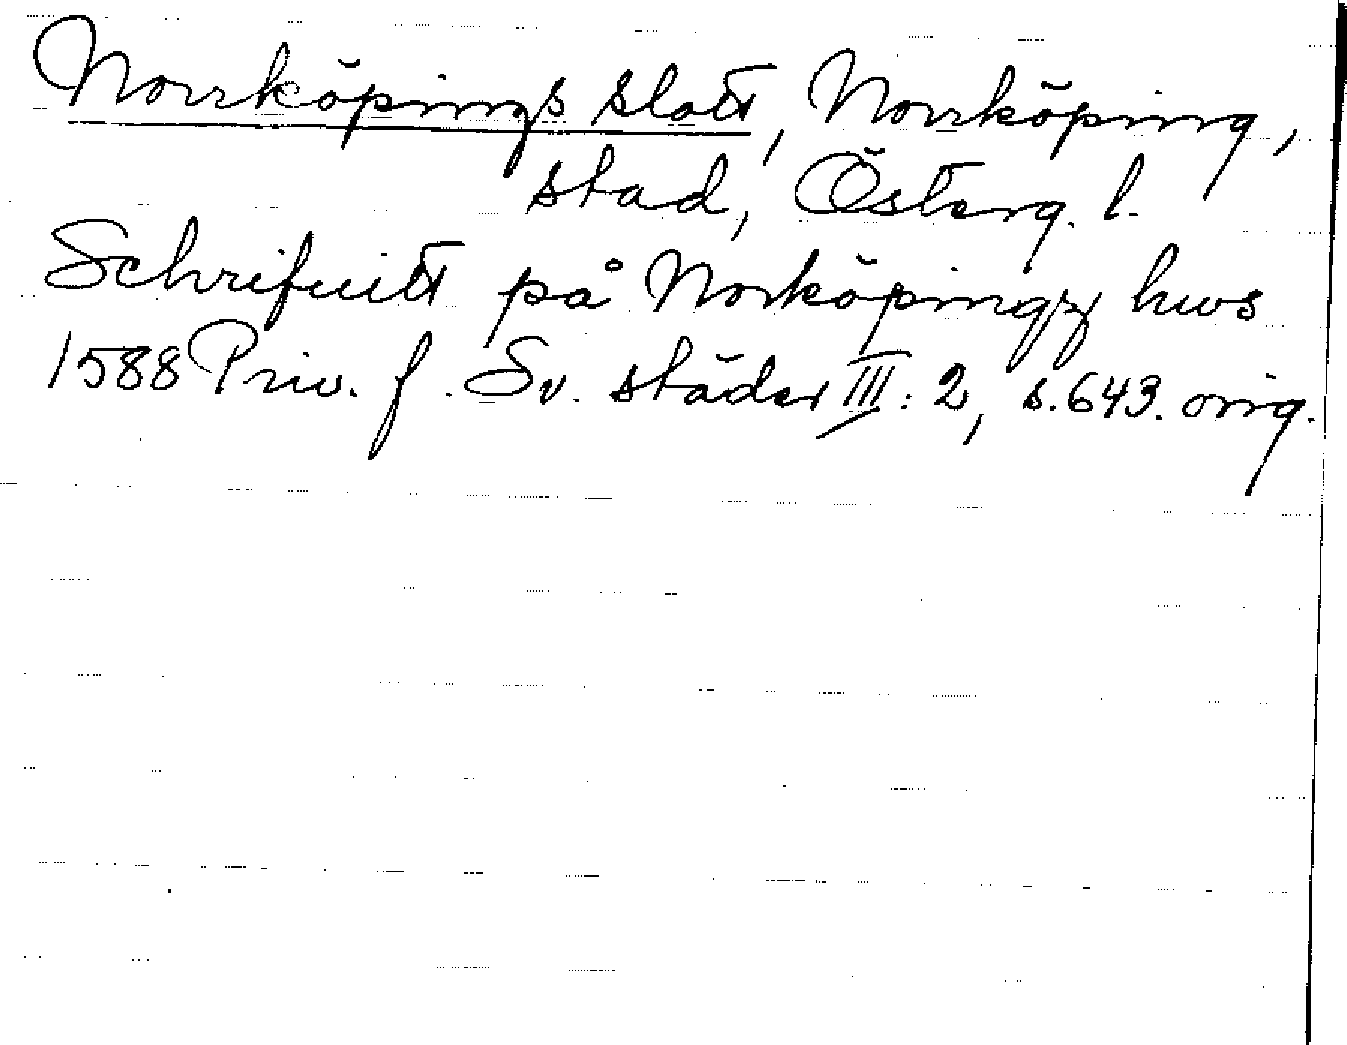 Norrköpings slott, Norrköping,
stad, Österg. l.
Schrifuitt på Norköpingz hws
1588 Priv. f. Sv. städer III: 2, s. 643. orig.